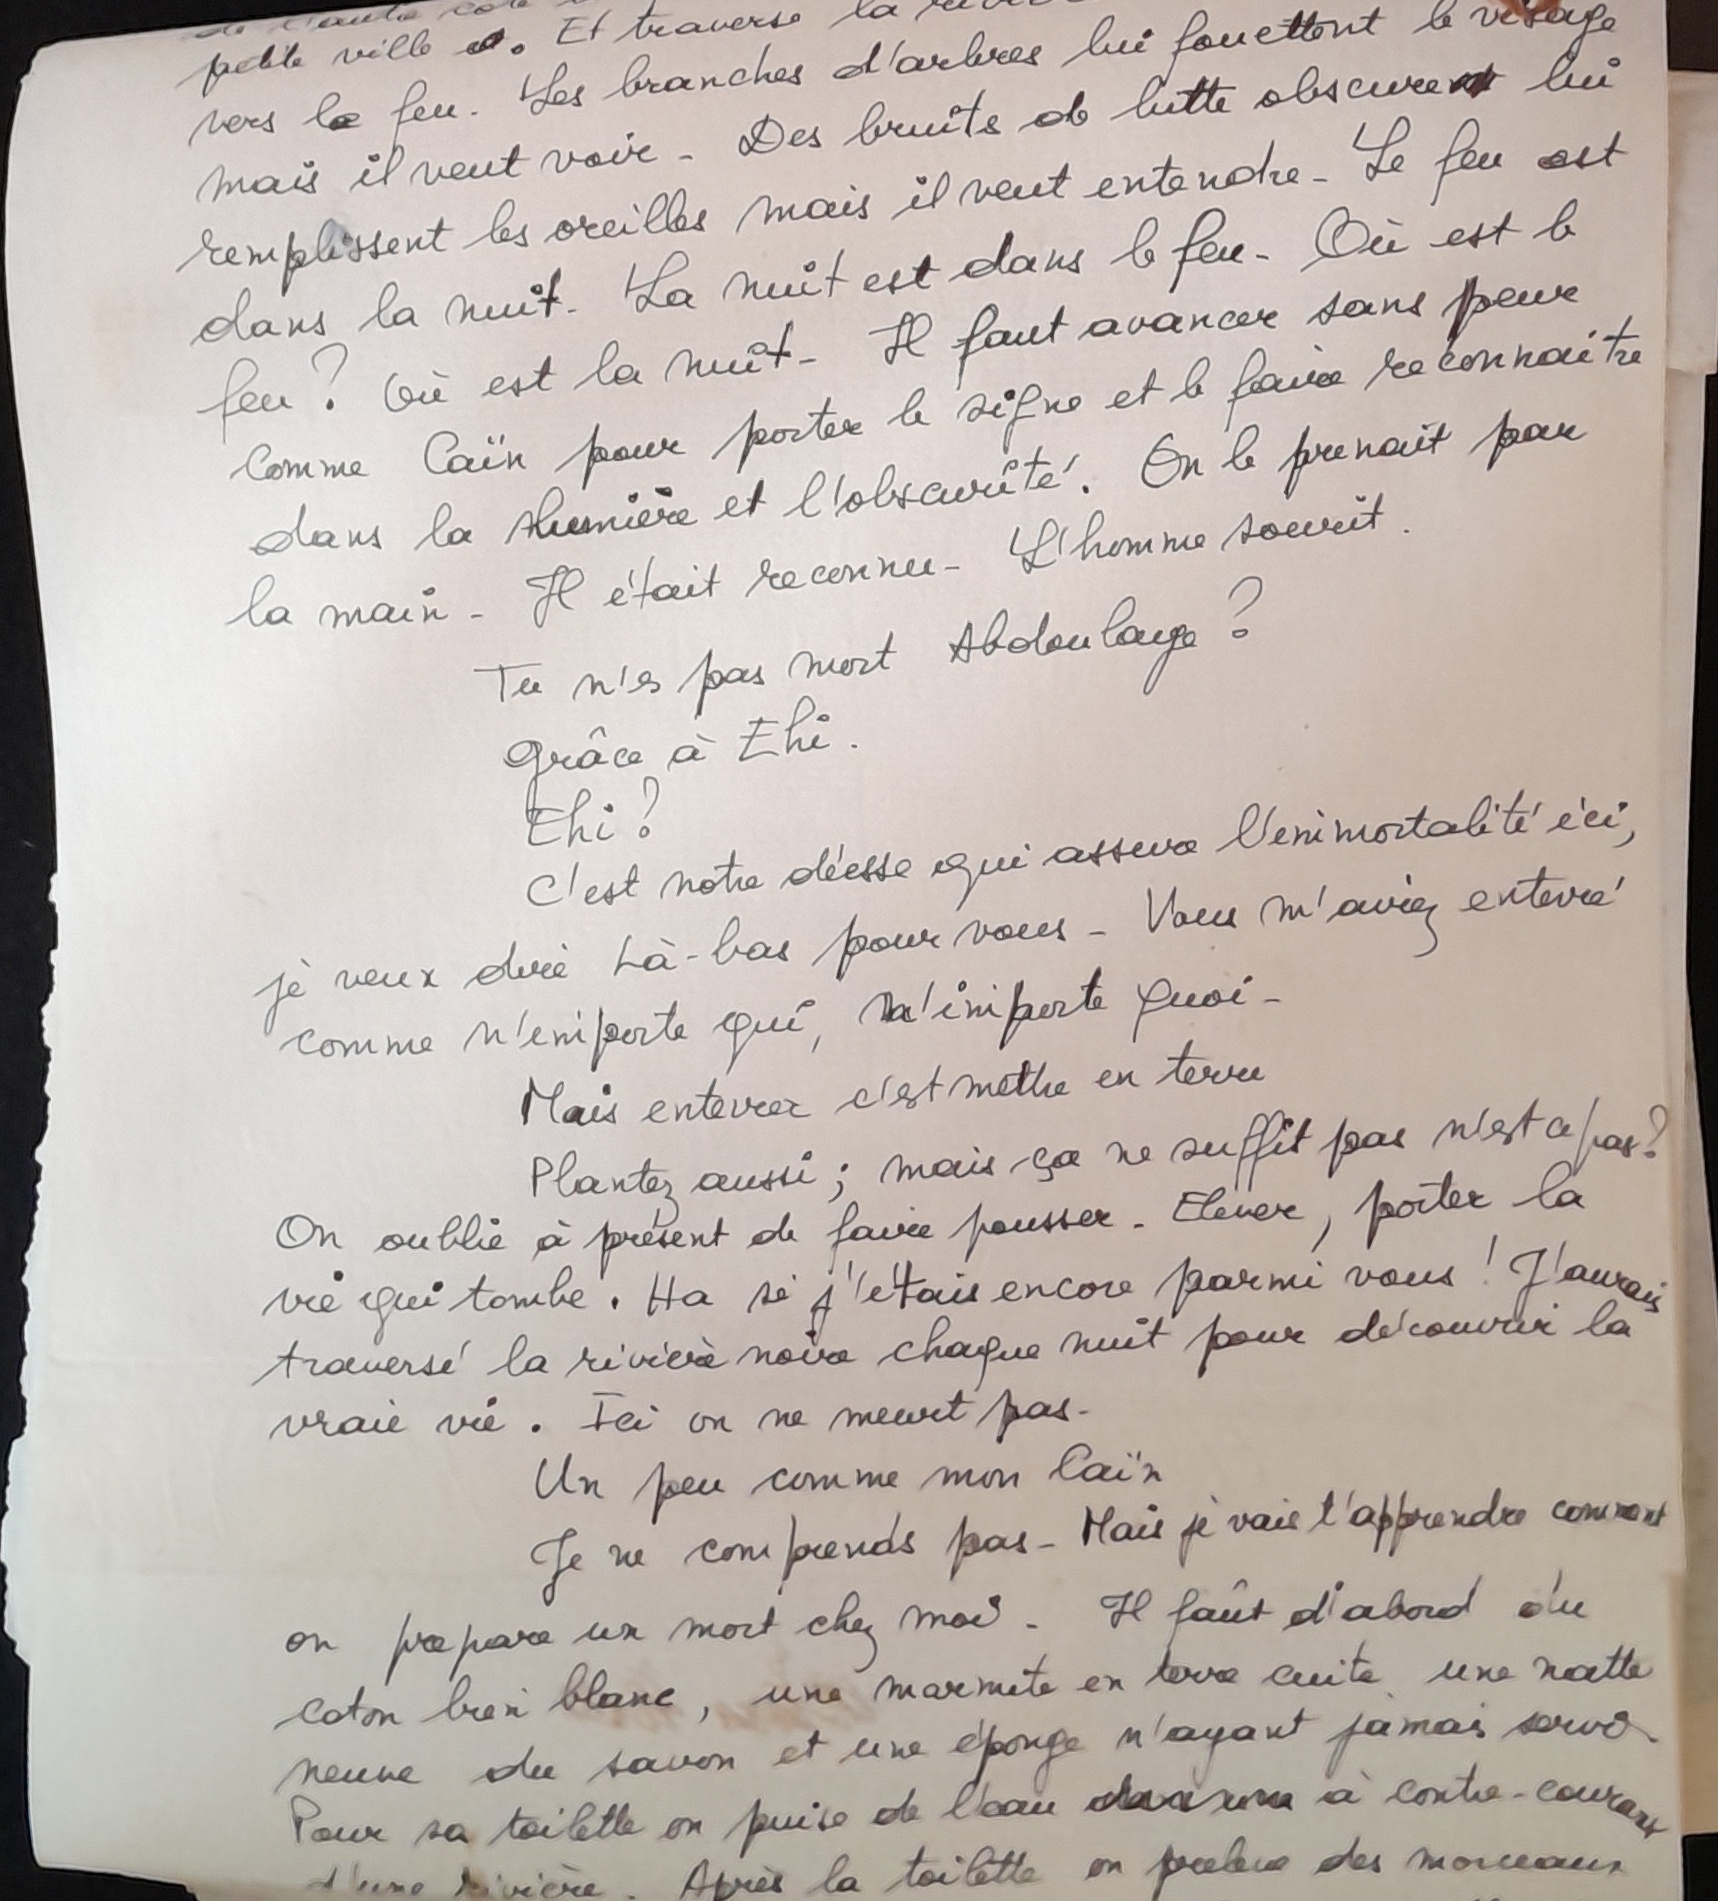 de l'autre côté
petite ville. Et traverse la
vers le feu. Les branches d'arbres lui fouettent le visage
mais il veut voir - Des bruits de lutte obscure lui
remplissent les oreilles mais il veut entendre - Le feu est
dans la nuit - La nuit est dans le feu - Où est le
feu ? Où est la nuit - Il faut avancer sans peur
comme Caïn pour porter le signe et le faire reconnaitre
dans la lumière et l'obscurité. On le prenait par
la main - Il était reconnu - L'homme sourit.
Tu n'es pas mort Abdoulaye ?
Grâce à Ehi.
Ehi ?
C'est notre déesse qui assure l'immortalité ici,
je veux dire Là-bas pour vous - Vous m'aviez enterré
comme n'importe qui, n'importe quoi -
Mais enterrer c'est mettre en terre
Plantez aussi ; mais ça ne suffit pas n'est ce pas ?
On oublie à présent de faire pousser - Elever, porter la
vie qui tombe. Ha si j'étais encore parmi vous ! J'aurais
traversé la rivière noire chaque nuit pour découvrir la
vraie vie. Ici on ne meurt pas -
Un peu comme mon Caïn
Je ne comprends pas - Mais je vais t'apprendre comment
on prepare un mort chez moi - Il faût d'abord du
coton bien blanc, une marmite en terre cuite une natte
neuve du savon et une éponge n'ayant jamais servi -
Pour sa toilette on puise de l'eau à contre-courant
d'une rivière. Après la toilette on des morceaux